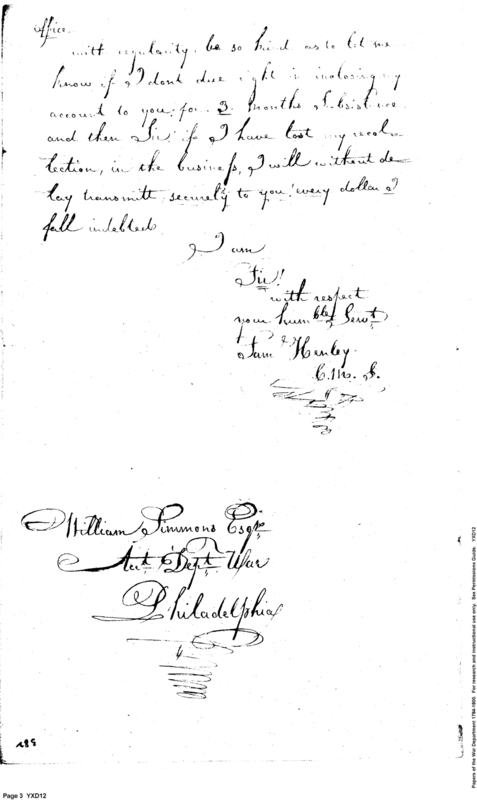 office
with regularity. be so kind as to let me
know if I dont due right in inclosing my
account to you for 3 months Subsistence
and then Sir if I have lost my recol-
lection, in the business, I will without de-
lay transmitt securely to you! every dollar I
fall indebted
I am
Sir!
with respect
your humble Servt
Sam Henley
C.M.S.
William Simmons Esqr
Act Dept War
Philadelphia
Page 3 YXD12
Papers of the War Department 1784-1800. For research and instructional use only. See Permissions Guide. YXD12